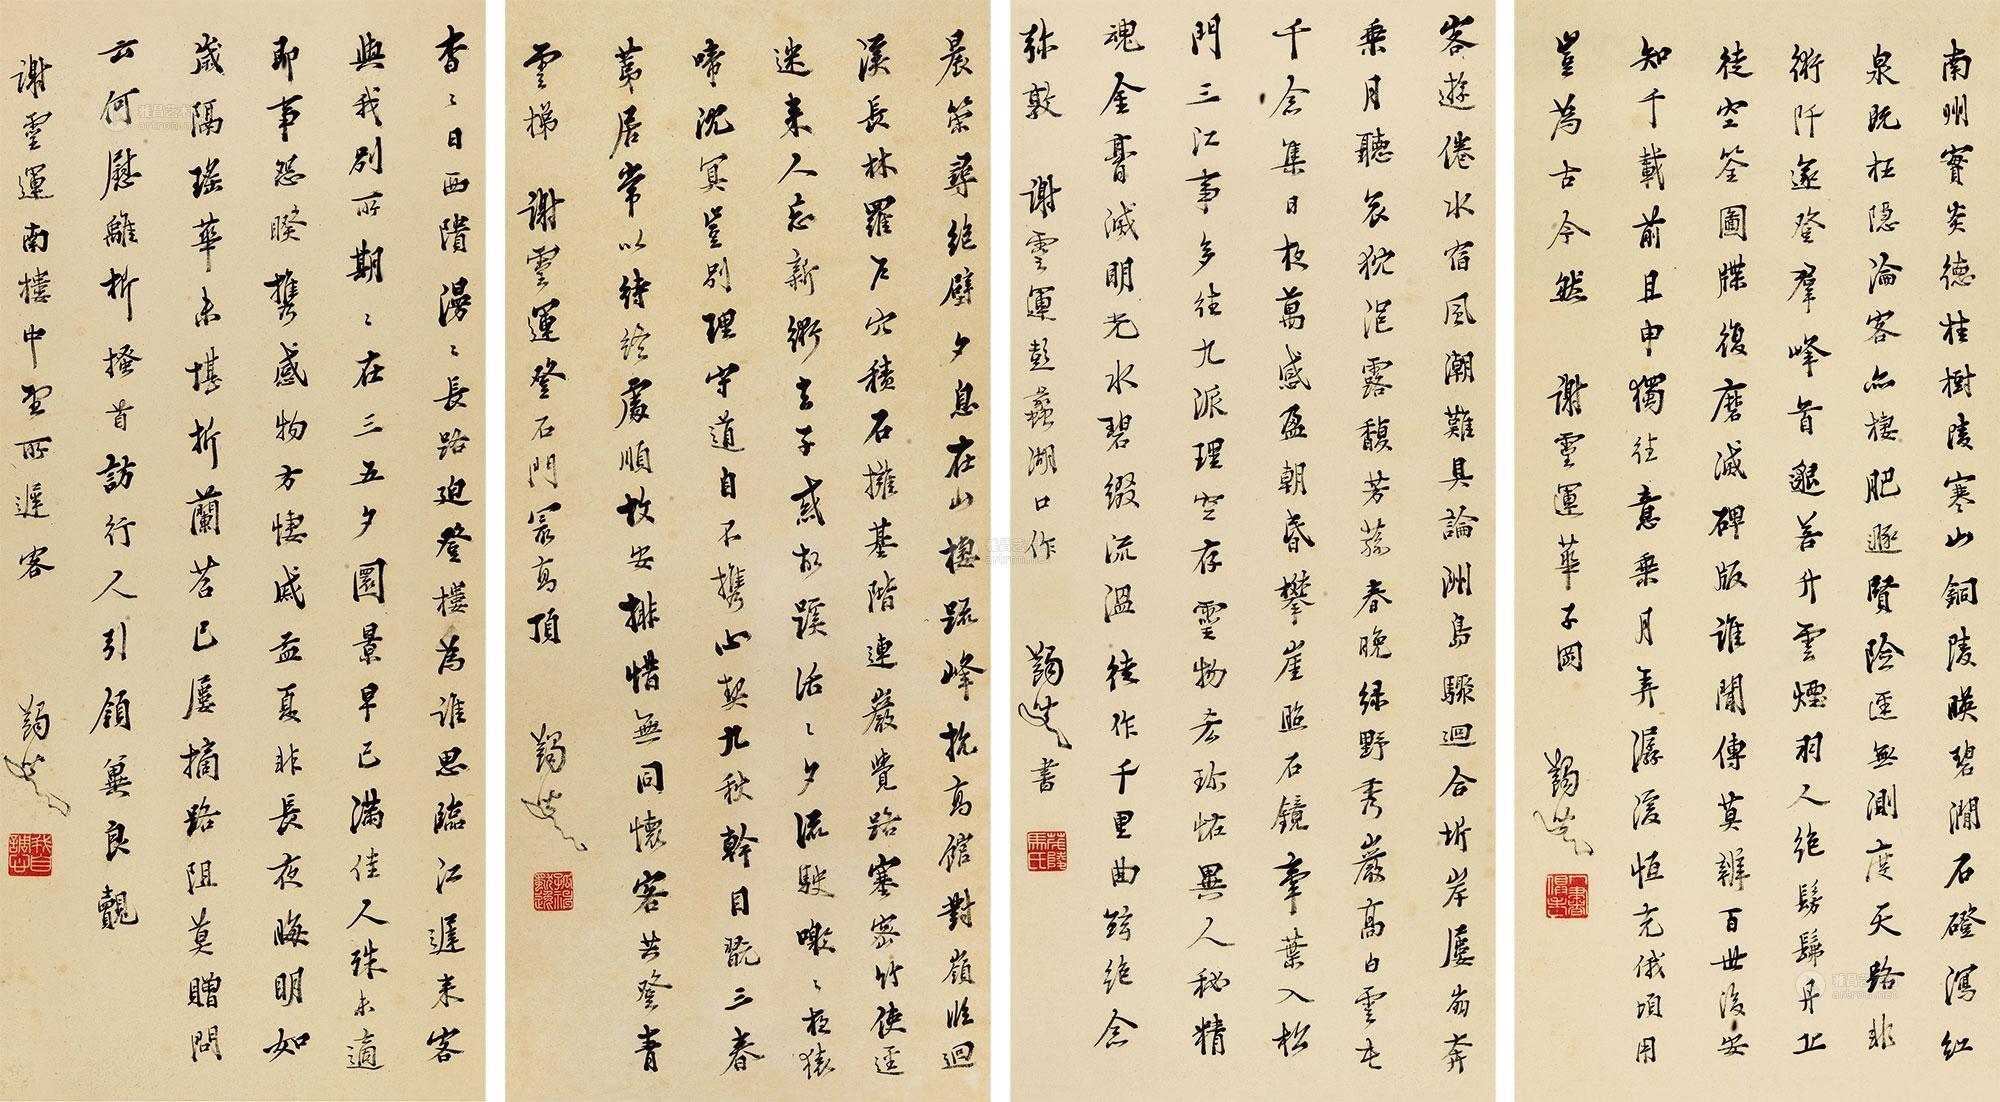 南州實炎德桂樹陵寒山銅陵暎碧澗石磴瀉紅
泉既枉隱淪客亦棲肥遯賢險逕無測度天路非
術阡遂登羣峰首邈若升雲煙羽人絕髣髴丹丘
徒空筌圖牒復磨滅碑版誰聞傳莫辨百世後安
知千載前且申獨往意乗月弄潺湲恒充俄頃用
豈為古今然 謝靈運華子岡
客遊倦水宿風潮難具論洲島驟迴合圻岸屢崩奔
乗月聽哀狖浥露馥芳蓀春晚緑野秀巖高白雲屯
千念集日夜萬感盈朝昏攀崖照石鏡牽葉入松
門三江事多往九派理空存靈物𠫤珍怪異人秘精
魂金膏滅明光水碧綴流溫徒作千里曲絃絕念
弥敦 謝靈運彭蠡湖口作 書
晨策尋絕壁夕息在山棲疏峰抗高館對嶺臨迴
溪長林羅戶穴積石擁基階連巖覺路塞密竹使逕
迷来人忘新術去子惑故蹊活〻夕流駛噭〻夜猿
啼沉冥豈別理守道自不携心契九秋幹目翫三春
荑居常以待終處順故安排惜無同懷客共登青
雲梯 謝靈運登石門最高頂
杳〻日西隤漫〻長路迫登樓為誰思臨江遲来客
與我別所期〻在三五夕圓景早已滿佳人殊未適
即事怨睽携感物方悽戚孟夏非長夜晦明如
歲隔瑤華未堪折蘭苕已屢摘路阻莫贈問
云何慰離析搔首訪行人引領冀良覿
謝靈運南樓中望所遲客